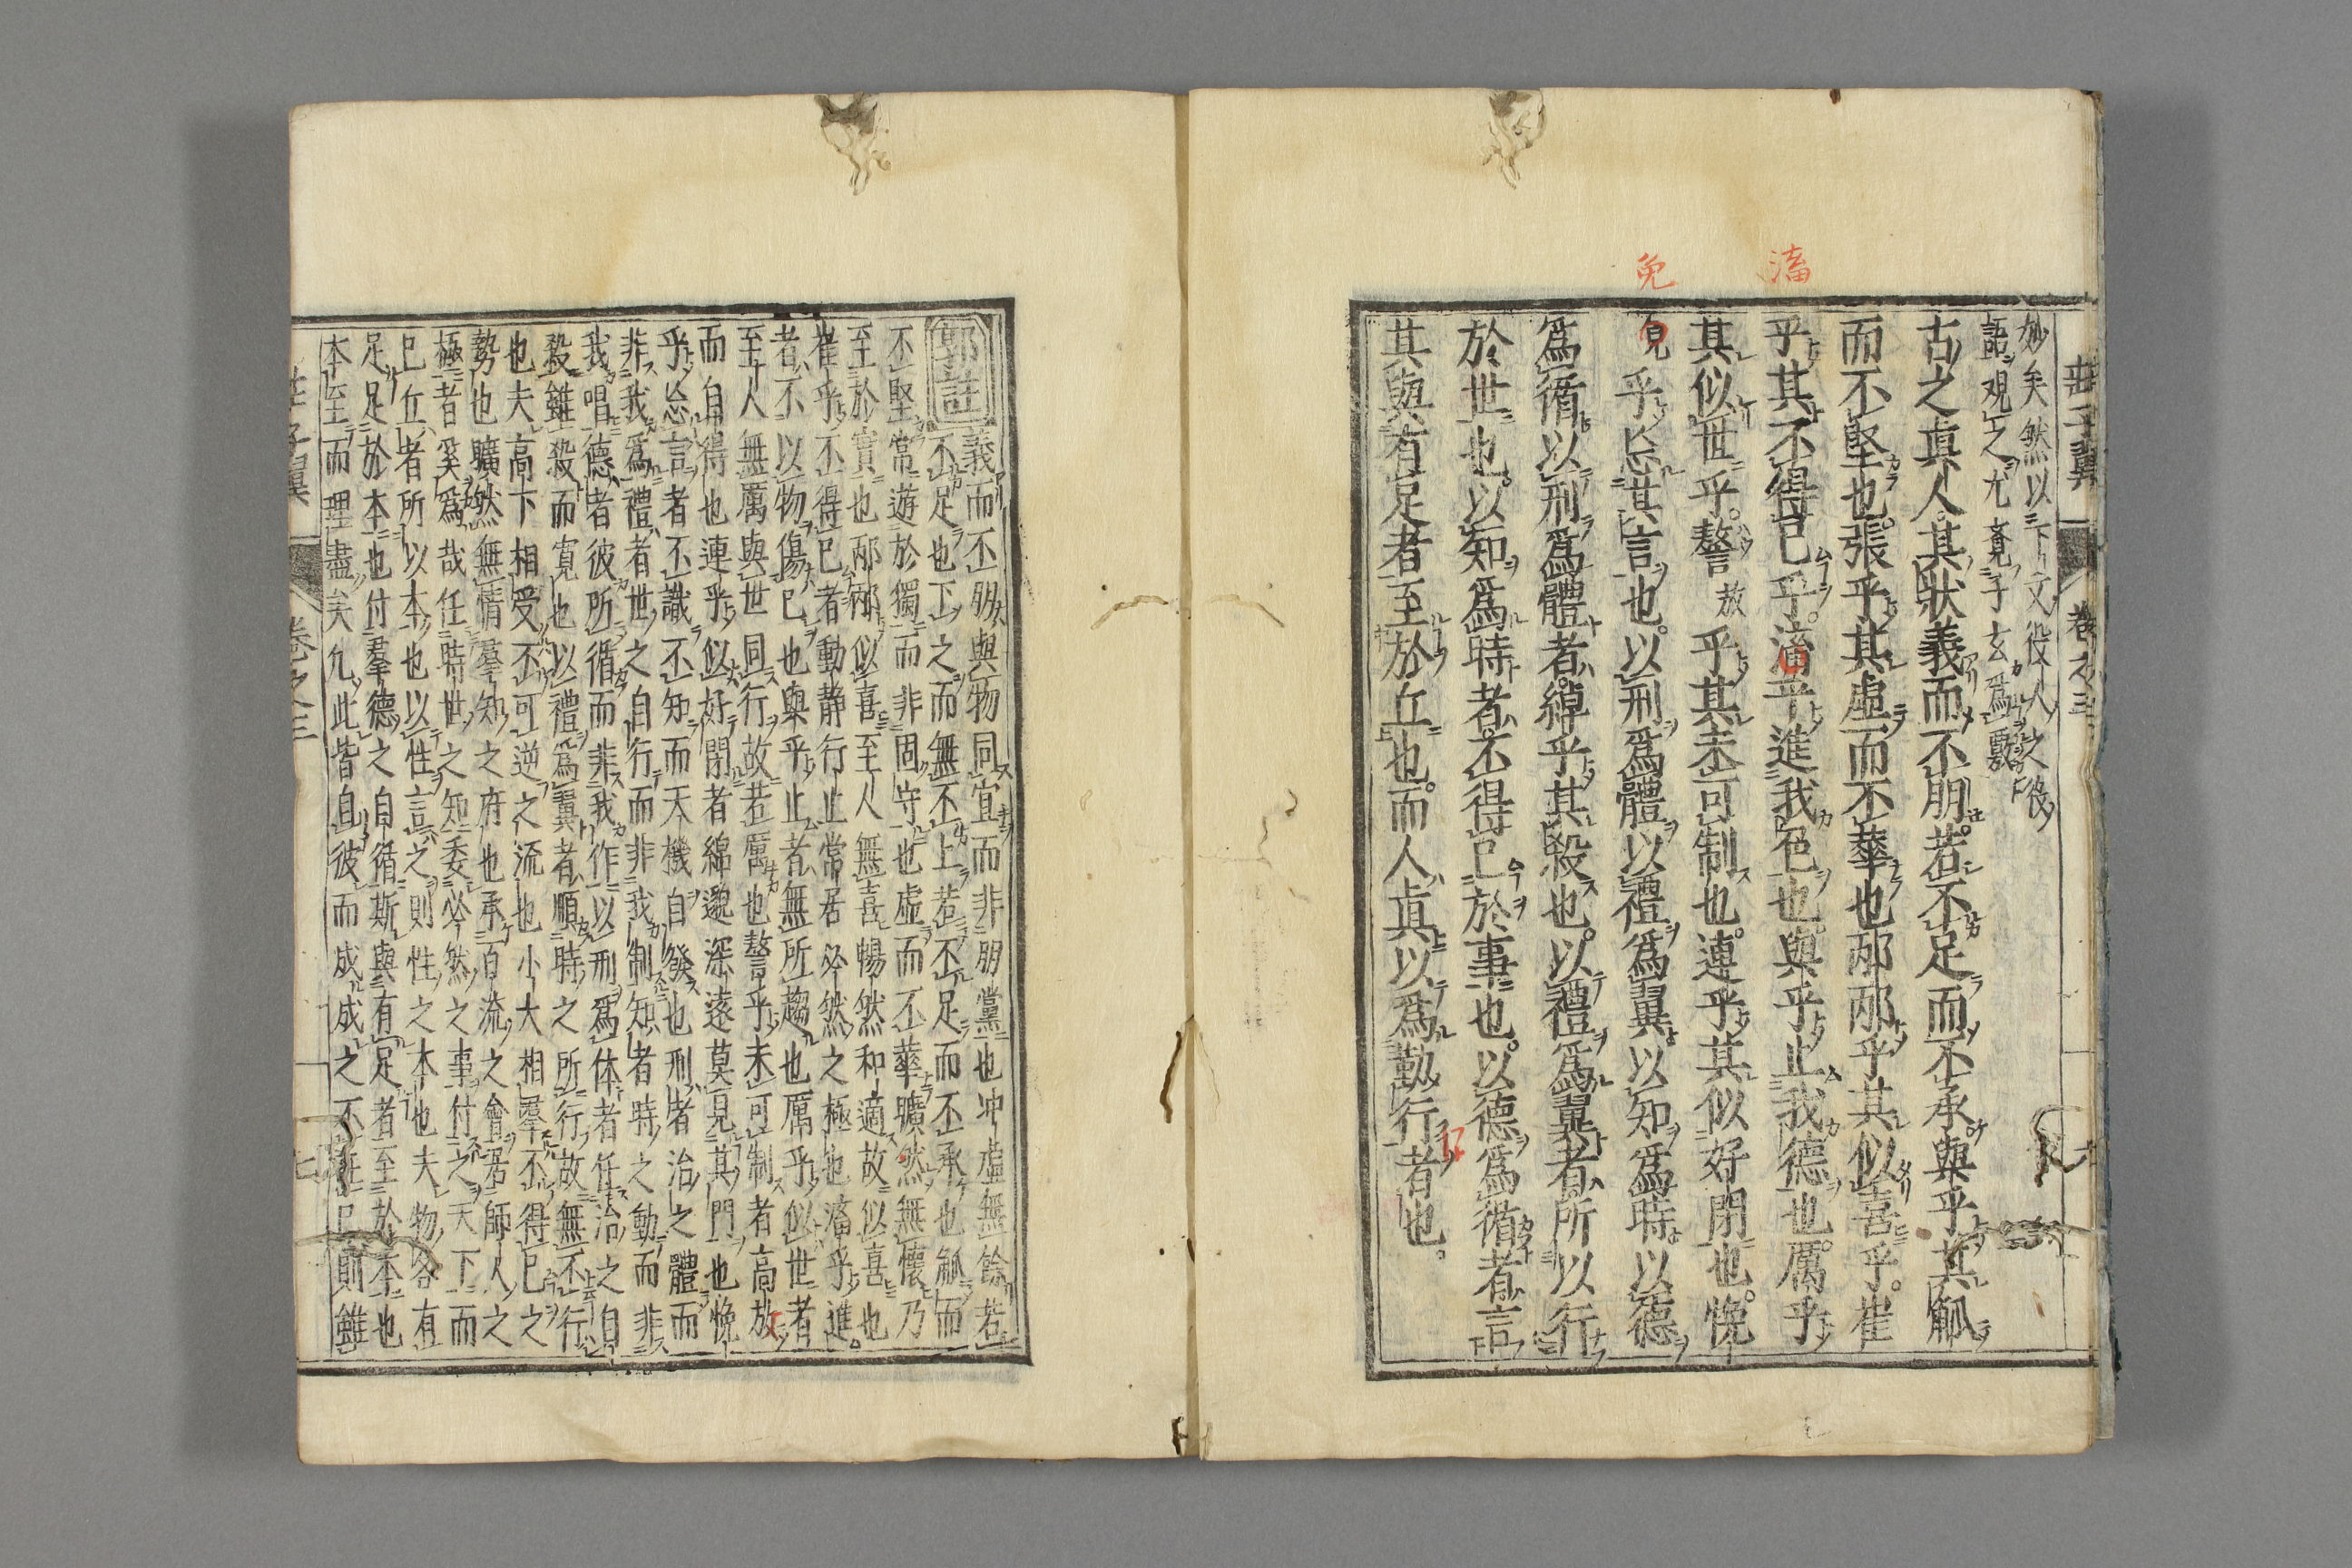 莊子翼 卷之三
妙矣然以下文役人之役
語觀之尤覺子玄爲覈
古之眞人其狀義而不朋若不足而不承與乎其觚
而不堅也張乎其虛而不華也邴邴乎其似喜乎崔
乎其不得已乎滀乎進我色也與乎止我德也厲乎
其似世乎謷放乎其未可制也連乎其似好閉也悗
乎忘其言也以刑爲體以禮爲翼以知爲時以德
爲循以刑爲體者綽乎其殺也以禮爲翼者所以行
於世也以知爲時者不得已於事也以德爲循者言
其與有足者至於丘也而人眞以爲勤行者也
滀
免
郭註
義而不朋與物同宜而非朋黨也冲虛無餘若
不足也下之而無不上若不足而不承也觚而
不堅常遊於獨而非固守也虛而不華曠然無懷乃
至於實也邴邴似喜至人無喜暢然和適故似喜也
崔乎不得已者動靜行止常居必然之極也滀乎進
者不以物傷已也與乎止者無所趨也厲乎似世者
至人無厲與世同行故若厲也謷乎未可制者高放
而自得也連乎似好閉者綿邈深遠莫見其門也悗
乎忘言者不識不知而天機自發也刑者治之體而
非我爲禮者世之自行而非我制知者時之動而非
我唱德者彼所循而非我作以刑爲体者任治之自
殺雖殺而寬也以禮爲翼者順時之所行故無不行
也夫高下相受不可逆之流也小大相羣不得已之
勢也曠然無情羣知之府也承百流之會居師人之
極者奚爲哉任時世之知委必然之事付之天下而
已丘者所以本也以性言之則性之本也夫物各有
足足於本也付羣德之自循斯與有足者至於本也
本至而理盡矣凡此皆自彼而成成之不在已則雖
莊子翼 卷之三 七